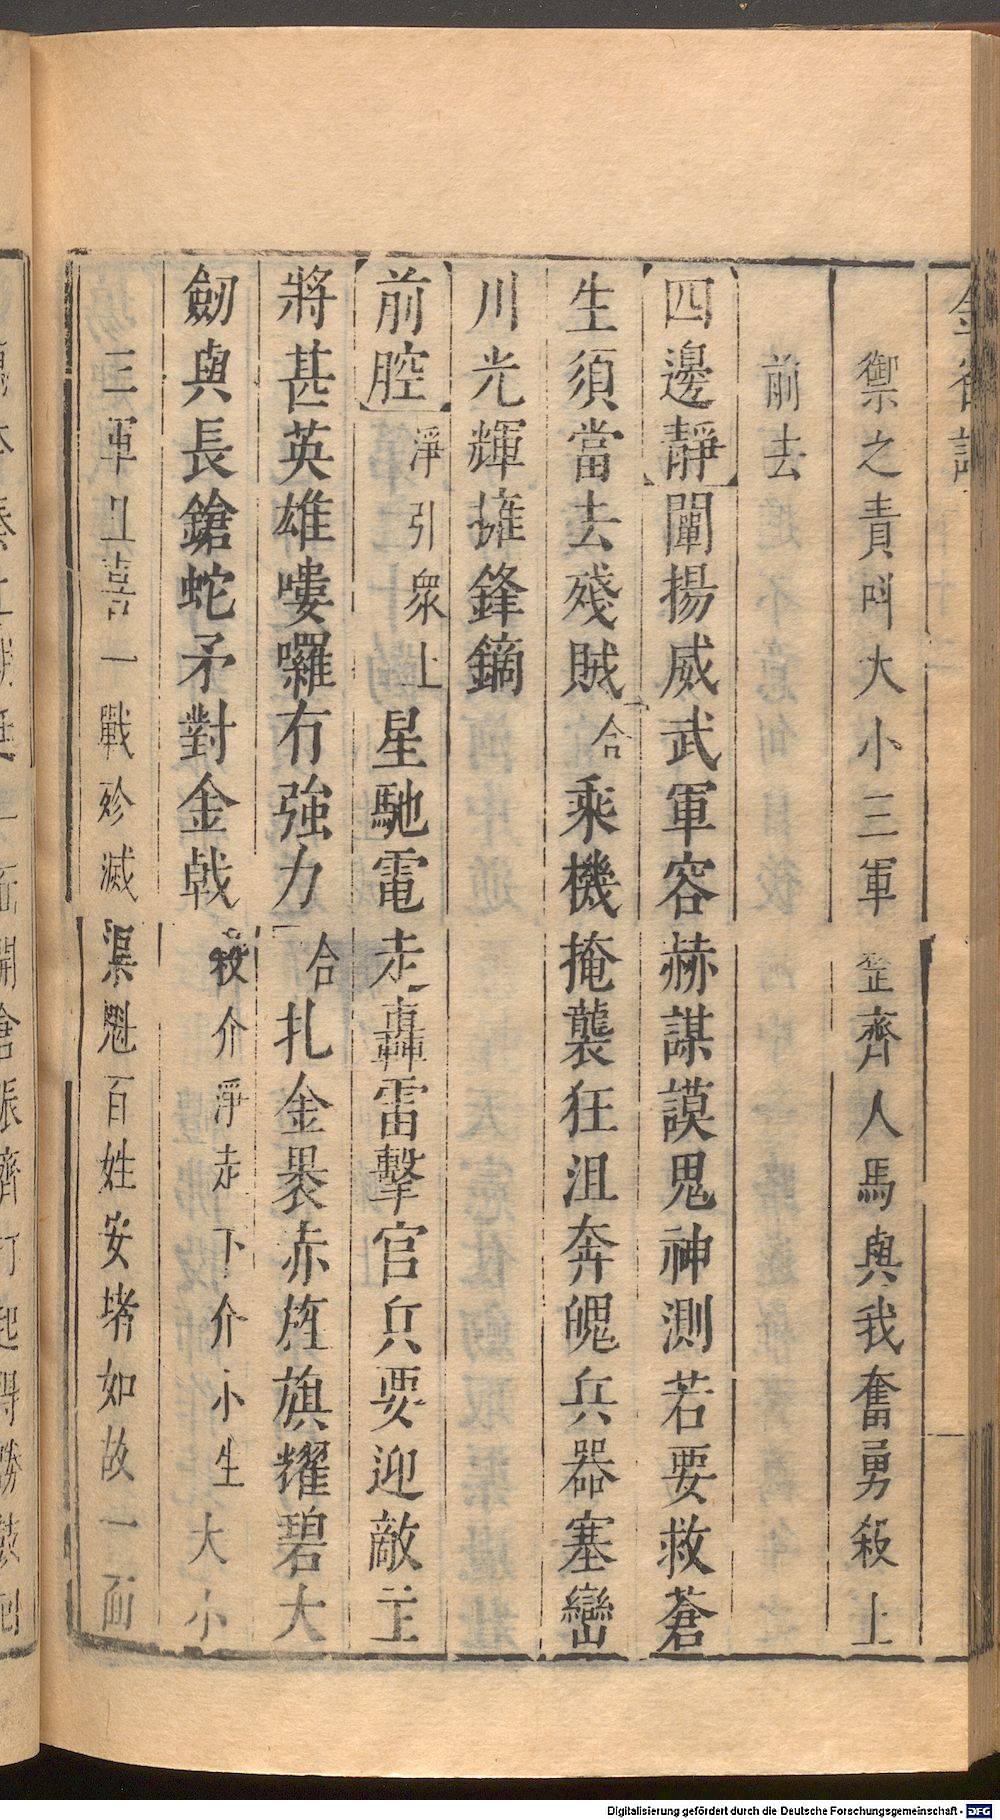 禦之責呌大小三軍𪗋齊人馬與我奮勇殺上
前去
四邊靜闡揚威武軍容赫謀謨鬼神測若要救蒼
生須當去殘賊合乘機掩襲狂沮奔魄兵器塞巒
川光輝擁鋒鏑
前腔淨引衆上星馳電走轟雷擊官兵要迎敵主
將甚英雄嘍囉有強力合扎金褁赤旌旗耀碧大
劒與長鎗蛇矛對金戟殺介淨走下介小生大小
三軍且喜一戰殄滅渠魁百姓安堵如故一面
Digitalisierung gefördert durch die Deutsche Forschungsgemeinschaft - DFG